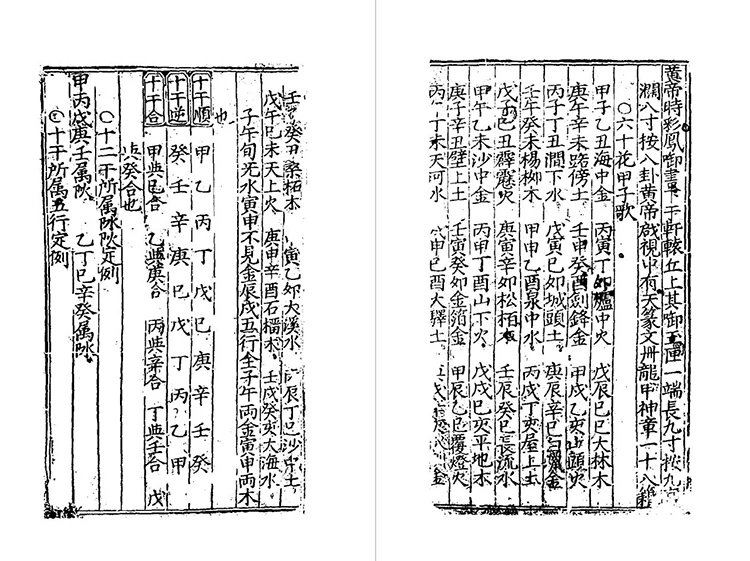 黃帝時彩鳳啣書于軒轅丘上其啣玉匣一端長九寸按九
濶八寸按八卦黃帝啟視中有天篆文冊龍甲神章一十八
〇六十花甲子歌
甲子乙丑海中金 丙寅丁卯爐中火 戊辰己巳大林木
庚午辛未路傍土 壬申癸酉劍鋒金 甲戌乙亥山頭火
丙子丁丑澗下水 戊寅己卯城頭土 庚辰辛巳 金
壬午癸未楊柳木 甲申乙酉泉中水 丙戌丁亥屋上土
戊子己丑霹靂火 庚寅辛卯松栢木 壬辰癸巳長流水
甲午乙未沙中金 丙申丁酉山下火 戊戌己亥平地木
庚子辛丑壁上土 壬寅癸卯金箔金 甲辰乙巳覆燈火
丙午丁未天河水 戊申己酉大驛土
壬子癸丑桑柘木 寅乙卯大溪水 辰丁巳沙中土
戊午己未天上火 庚申辛酉石榴木 壬戌癸亥大海水
子午旬无水寅申不見金辰戌五行全子午兩金寅申兩木
也
十干順 甲乙丙丁戊己庚辛壬癸
十干逆 癸壬辛庚己戊丁丙乙甲
十干合 甲與己合 乙與庚合 丙與辛合 丁與壬合 戊
與癸合也
〇十二干所属阴阳定例
甲丙戊庚壬属阳 乙丁己辛癸属阴
〇十干所属五行定例